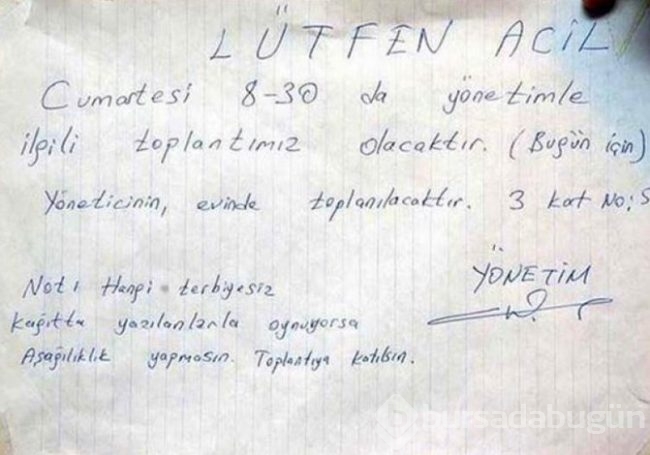 LÜTFEN ACİL
Cumartesi 8-30 da yönetimle
ilgili toplantımız olacaktır. (Bugün için)
Yöneticinin, evinde toplanılacaktır. 3 kat No: 5
YÖNETİM
Not: Hangi terbiyesiz
kağıtta yazılanlarla oynuyorsa
Aşağılıklık yapmasın. Toplantıya katılsın.
bursadabugün